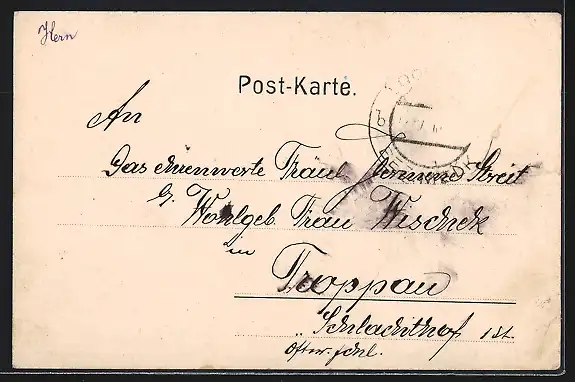 Hern
Post-Karte.
An
Das ehrenwerte Fräul. Hermene Streit
Wohlgeb. Frau Wischek
in
Troppau
Schlachthof